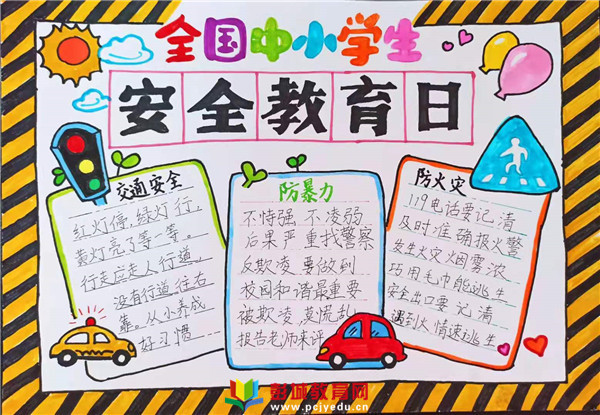 全国中小学生
安全教育日
交通安全
红灯停,绿灯行,
黄灯亮了等一等。
行走应走人行道,
没有行道往右
靠。从小养成
好习惯
防暴力
不恃强 不凌弱
后果严重找警察
反欺凌 要做到
校园和谐最重要
被欺凌 莫慌乱
报告老师来评
防火灾
119电话要记清
及时准确报火警
发生火灾烟雾浓
巧用毛巾能逃生
安全出口要记清
遇到火情速逃生
彭城教育网
www.pcjyedu.cn